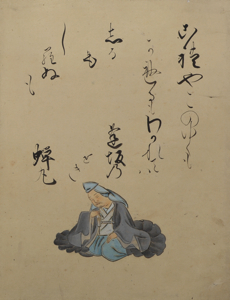 これやこのゆくも
かへるもわかれては
志る
も
しらぬ
も
逢坂の
せき
蝉丸